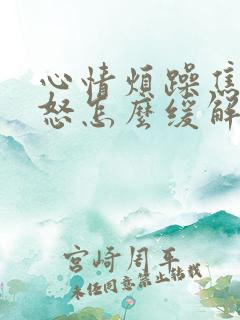 心情煩躁焦
怒怎麼緩解
宮崎周平
未经同意禁止转载